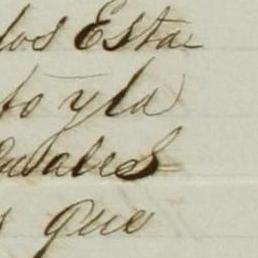 los Esta
to y la
cuales
que